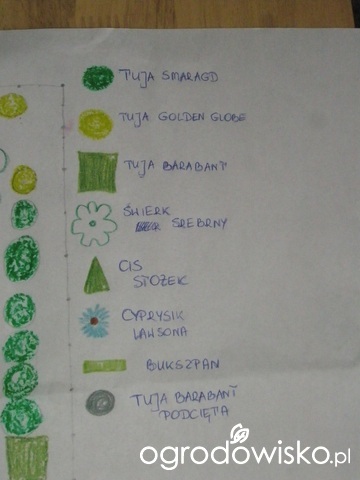 TUJA SMARAGD
TUJA GOLDEN GLOBE
TUJA BARABANT
ŚWIERK
SREBRNY
CIS
STOŻEK
CYPRYSIK
LAWSONA
BUKSZPAN
TUJA BARABANT
PODCIĘTA
ogrodowisko.pl